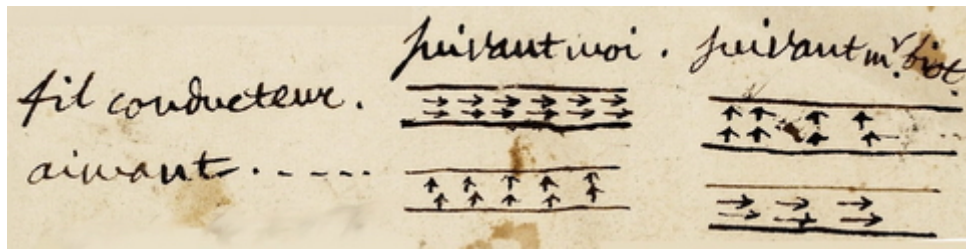 suivant moi. suivant mr. biot.
fil conducteur.
aimant . - - - - .